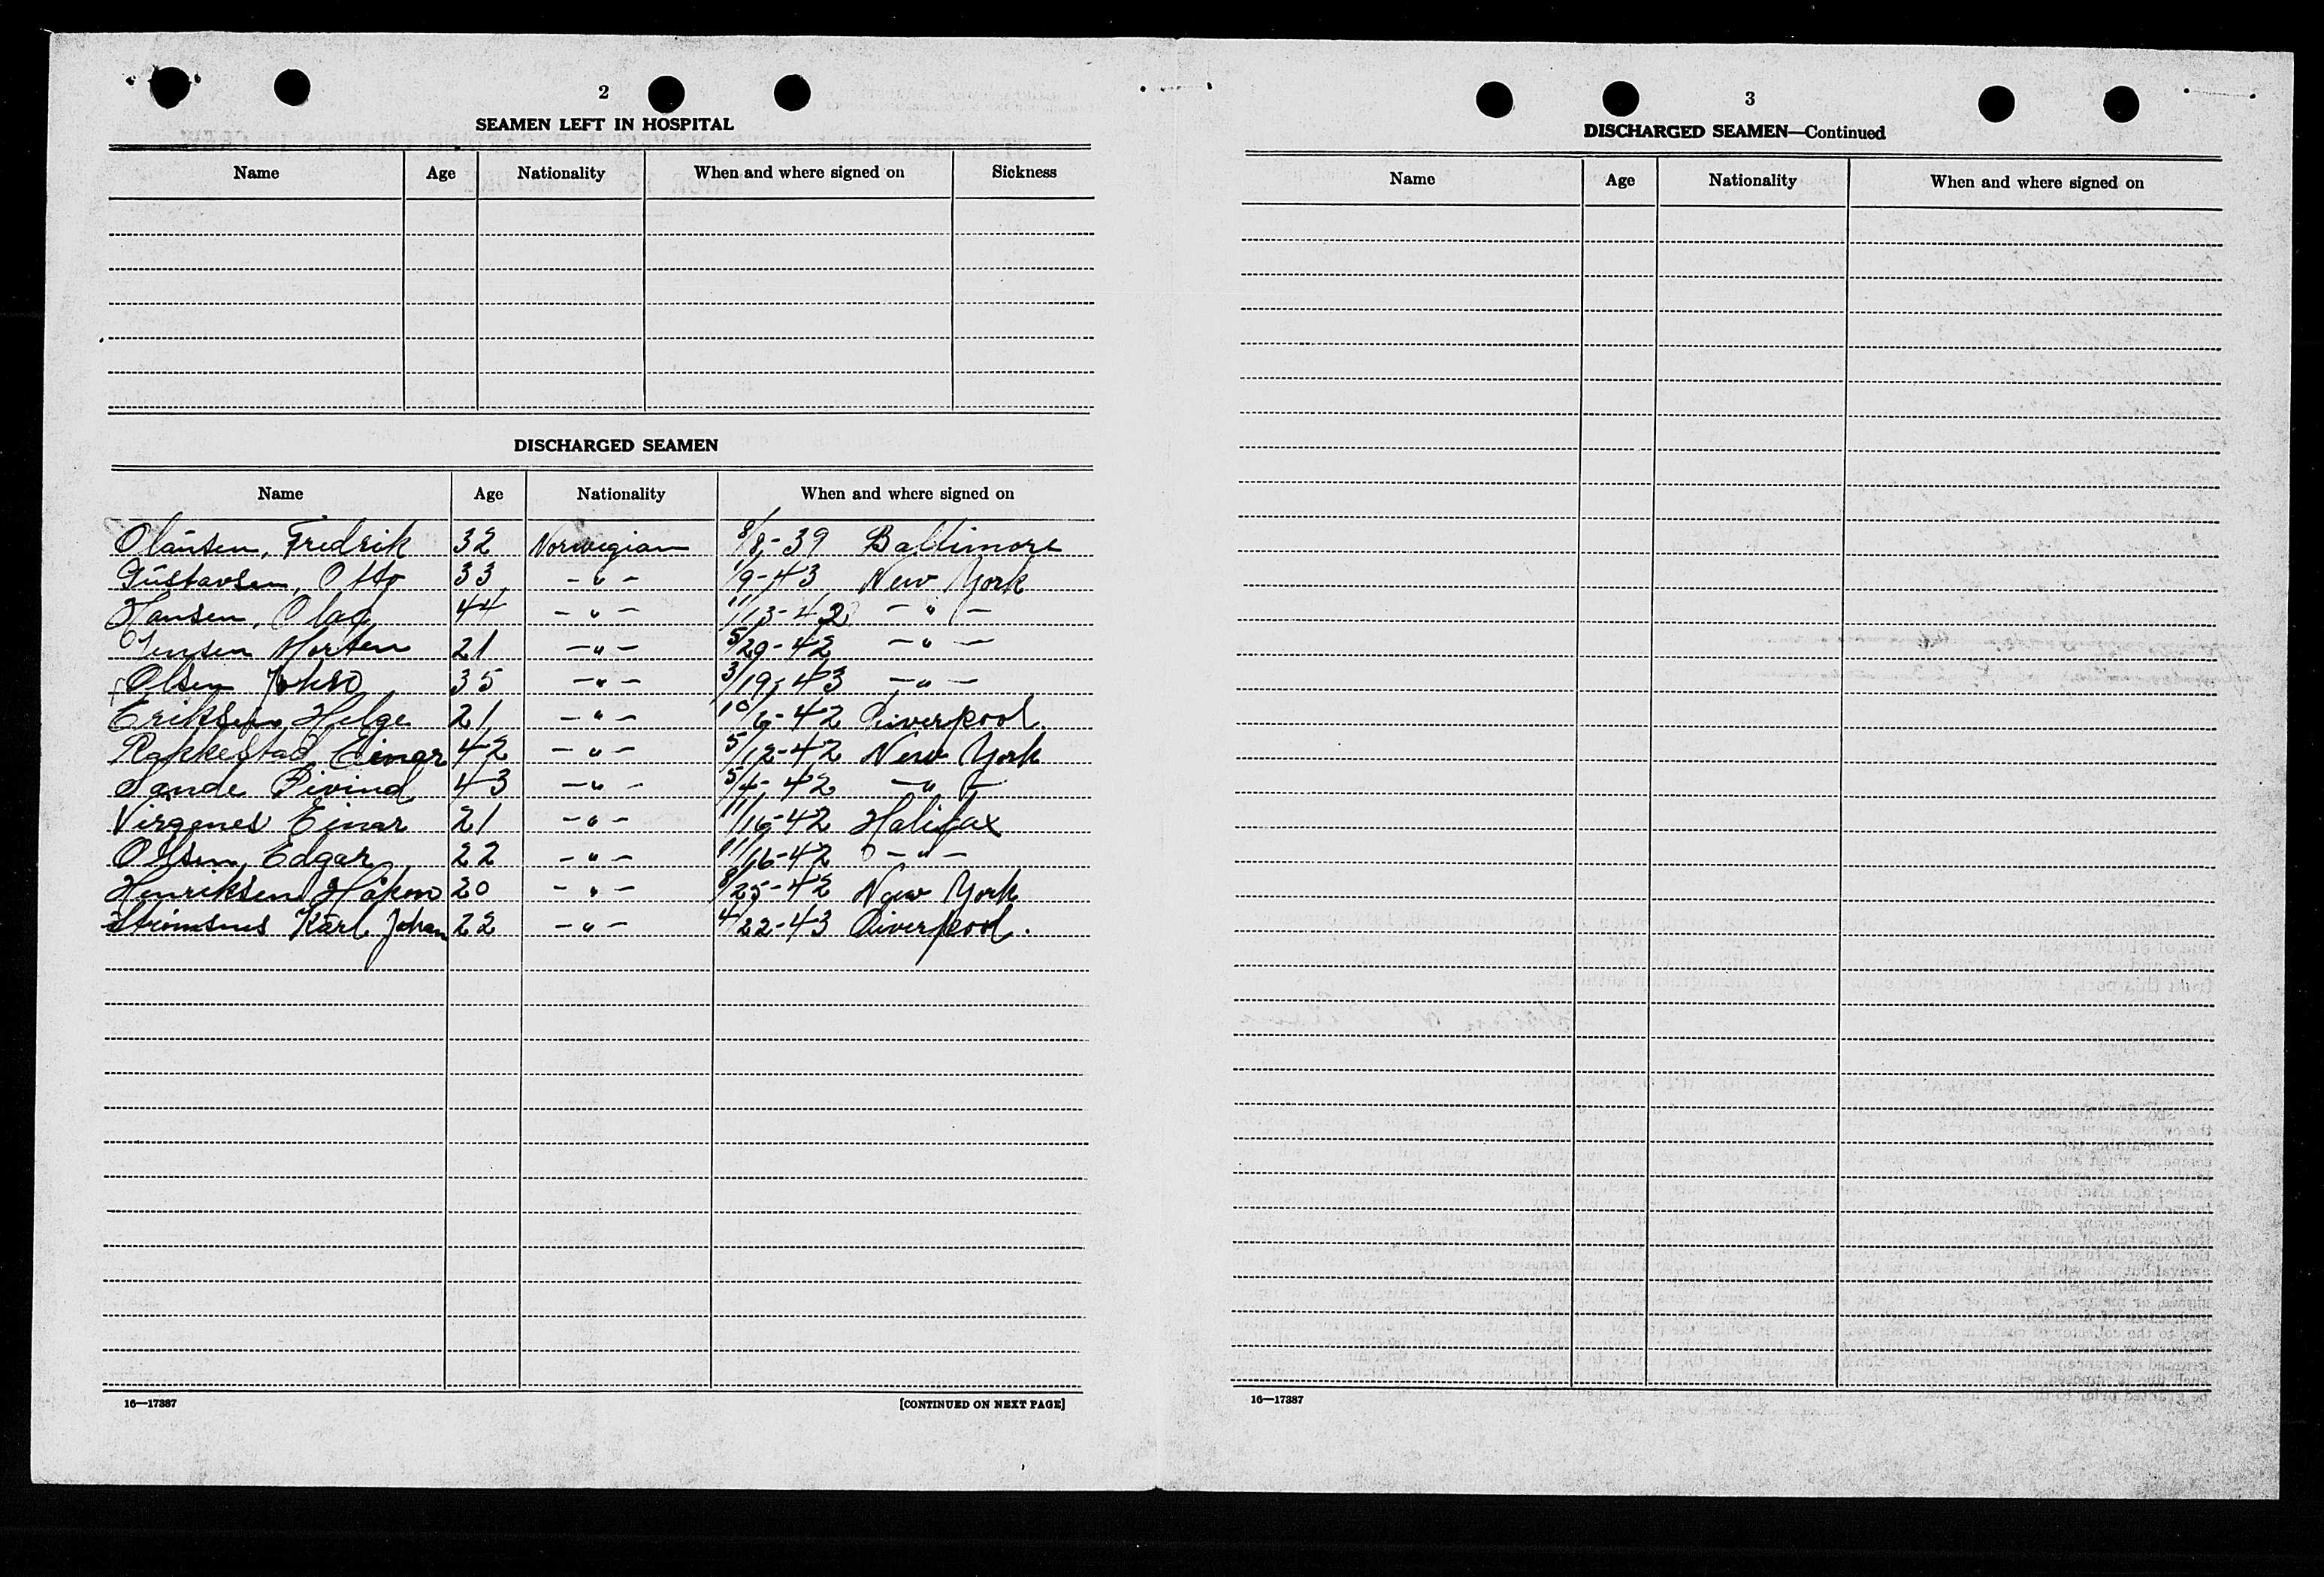 2
SEAMEN LEFT IN HOSPITAL
Name Age Nationality When and where signed on Sickness
DISCHARGED SEAMEN
Name Age Nationality When and where signed on
Olausen, Fredrik 32 Norwegian 8/8-39 Baltimore
Gustavsen, Otto 33 -"- 1/9-43 New York
Hansen, Olaf 44 -"- 11/13-42 -"-
Jensen Morten 21 -"- 5/29-42 -"-
Olsen 35 -"- 3/19-43 -"-
Eriksen, Helge 21 -"- 10/6-42 Liverpool
Rakkestad, Einar 42 -"- 5/12-42 New York
Sande Øivind 43 -"- 5/4-42 -"-
Virgenes Einar 21 -"- 11/16-42 Halifax
Olsen, Edgar 22 -"- 11/16-42 -"-
Henriksen Håkon 20 -"- 8/25-42 New York
Karl Johan 22 -"- 4/22-43 Liverpool.
16—17387 [CONTINUED ON NEXT PAGE]
3
DISCHARGED SEAMEN—Continued
Name Age Nationality When and where signed on
16—17387